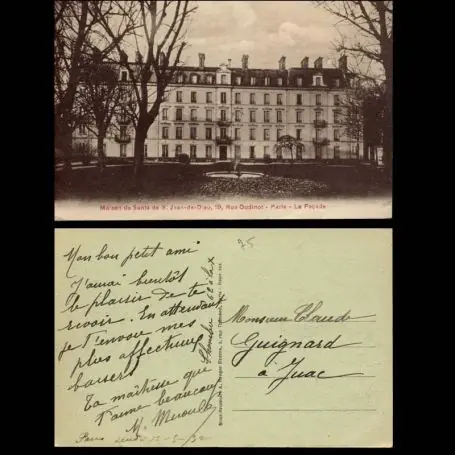 Maison de Santé de St Jean-de-Dieu, 19, Rue Oudinot - Paris - La Façade
75
Mon bon petit ami
J'aurai bientôt
le plaisir de te
revoir. En attendant
je t'envoie mes
plus affectueux
baisers
Ta maîtresse qui
t'aime beaucoup
Paris
Monsieur Claude
Guignard
à Juac